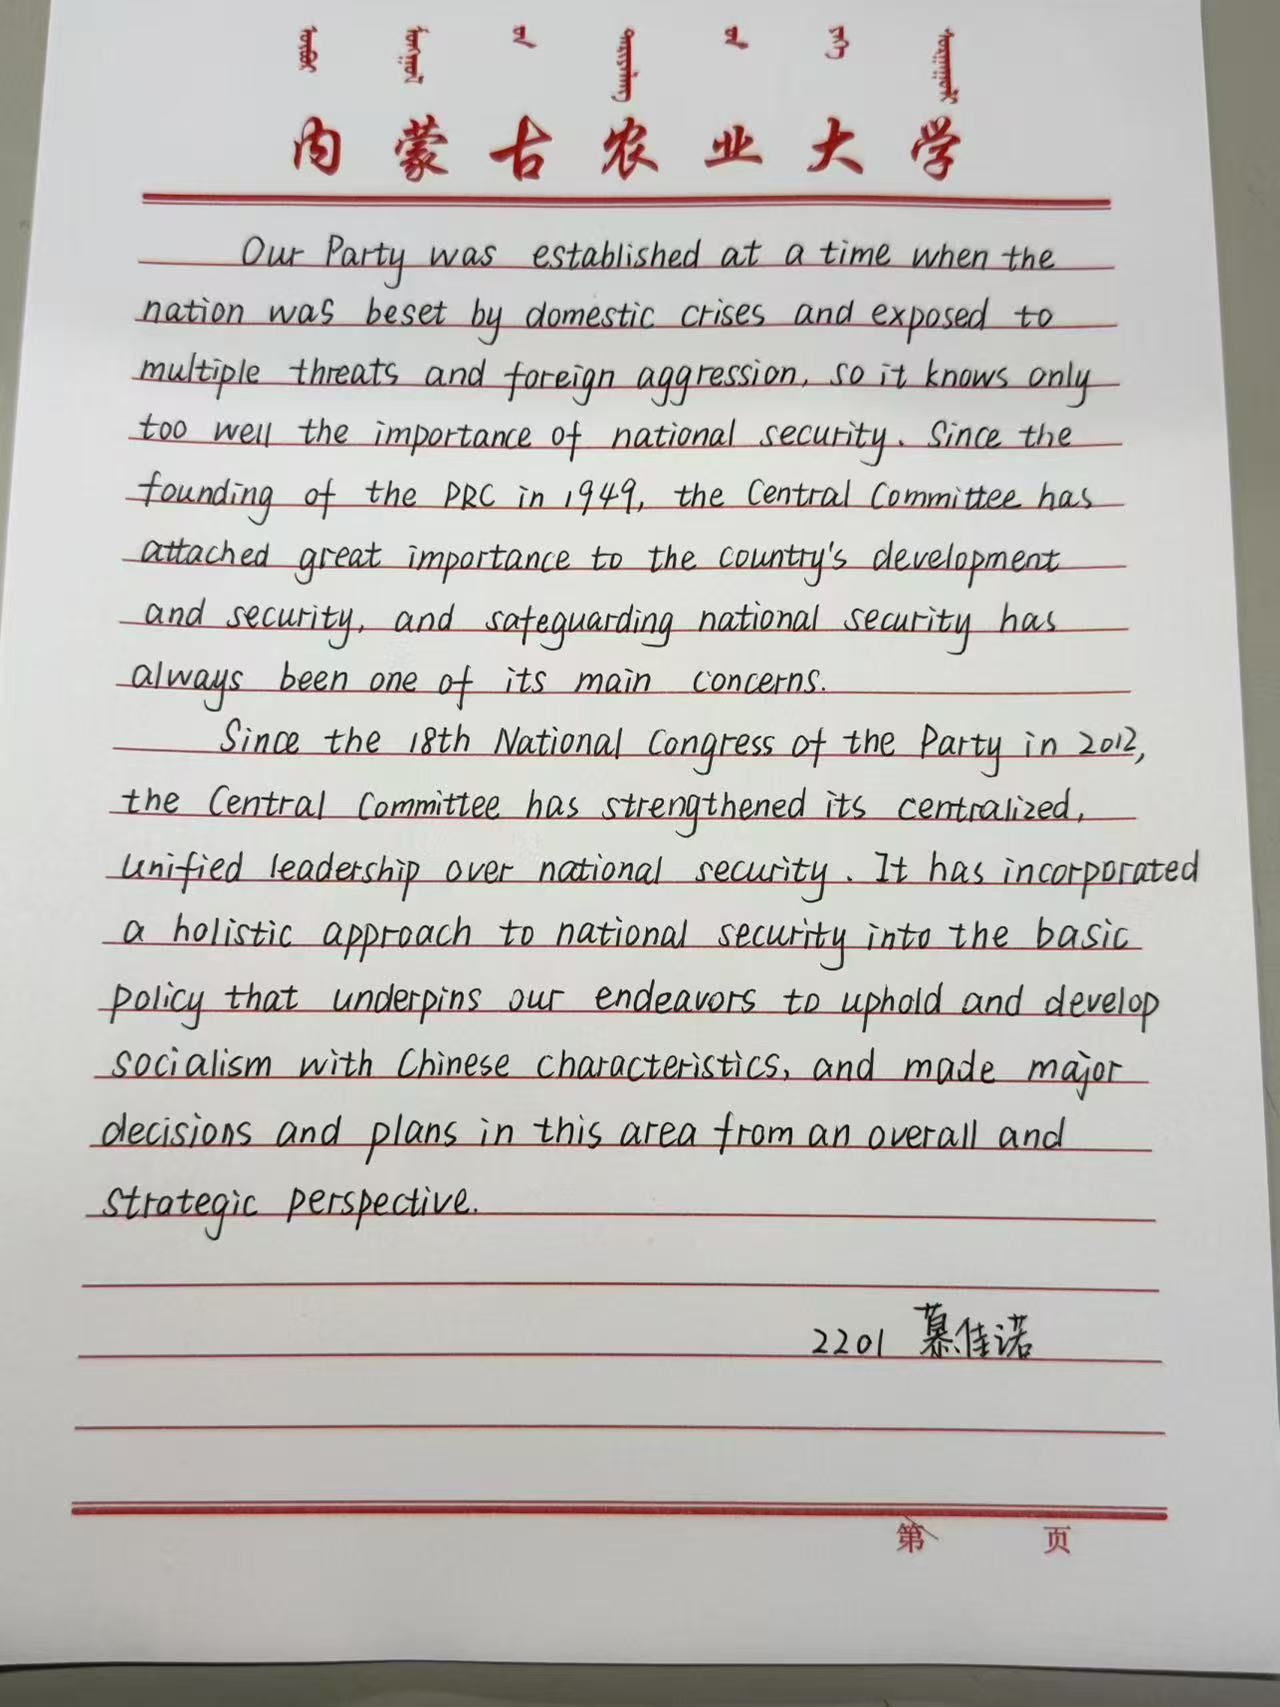 内蒙古农业大学
Our Party was established at a time when the
nation was beset by domestic crises and exposed to
multiple threats and foreign aggression, so it knows only
too well the importance of national security. Since the
founding of the PRC in 1949, the Central Committee has
attached great importance to the country's development
and security, and safeguarding national security has
always been one of its main concerns.
Since the 18th National Congress of the Party in 2012,
the Central Committee has strengthened its centralized,
unified leadership over national security. It has incorporated
a holistic approach to national security into the basic
policy that underpins our endeavors to uphold and develop
socialism with Chinese characteristics, and made major
decisions and plans in this area from an overall and
strategic perspective.
2201 慕佳诺
第 页